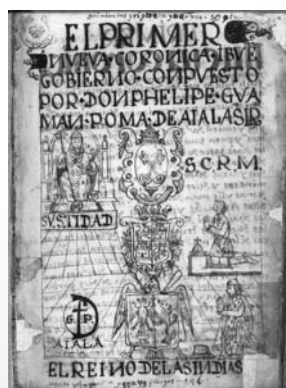 EL PRIMER
NVEVA CORONICA I BVE
GOBIERNO CONPVESTO
POR DON PHELIPE GVA
MAN POMA DE AIALA S IR
S.C.R.M.
SV S TIDAD
G P
AIALA
EL REINO DE LAS INDIAS